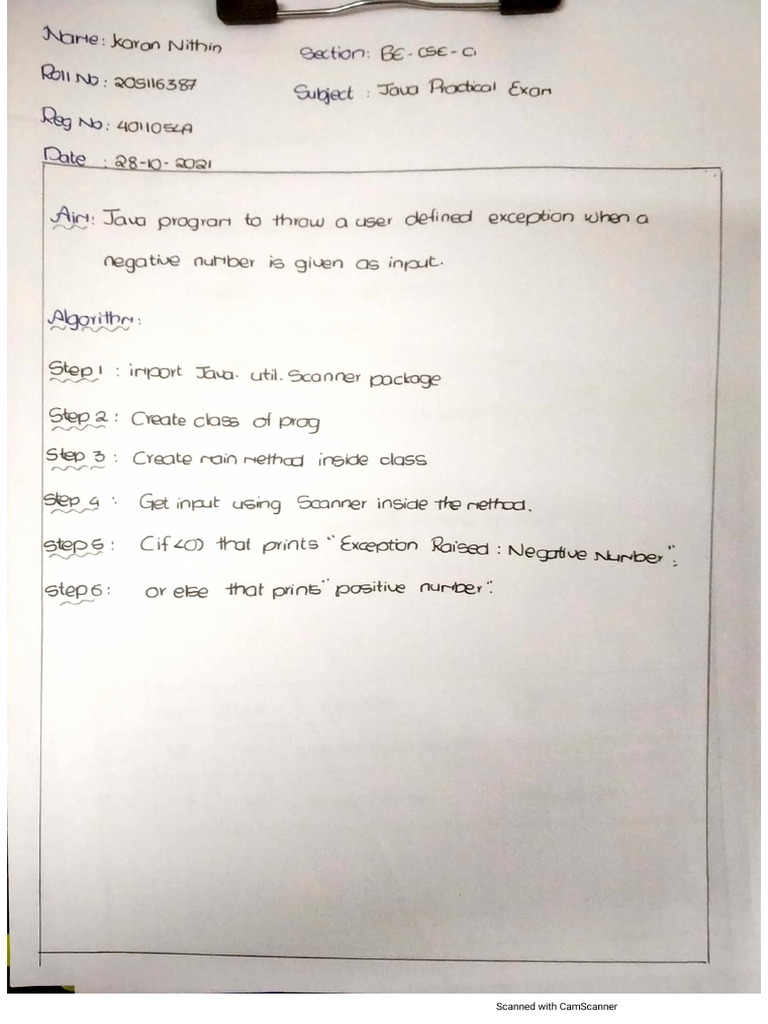 Name: Karan Nithin
Section: BE-CSE-C1
Roll No: 205116387
Subject: Java Practical Exam
Reg No: 4011054A
Date : 28-10-2021
Aim: Java program to throw a user defined exception when a
negative number is given as input.
Algorithm:
Step 1 : import Java. util. Scanner package
Step 2 : Create class of prog
Step 3 : Create main method inside class
Step 4 : Get input using Scanner inside the method.
Step 5 : (if<0) that prints "Exception Raised : Negative Number":
Step 6 : or else that prints "positive number".
Scanned with CamScanner